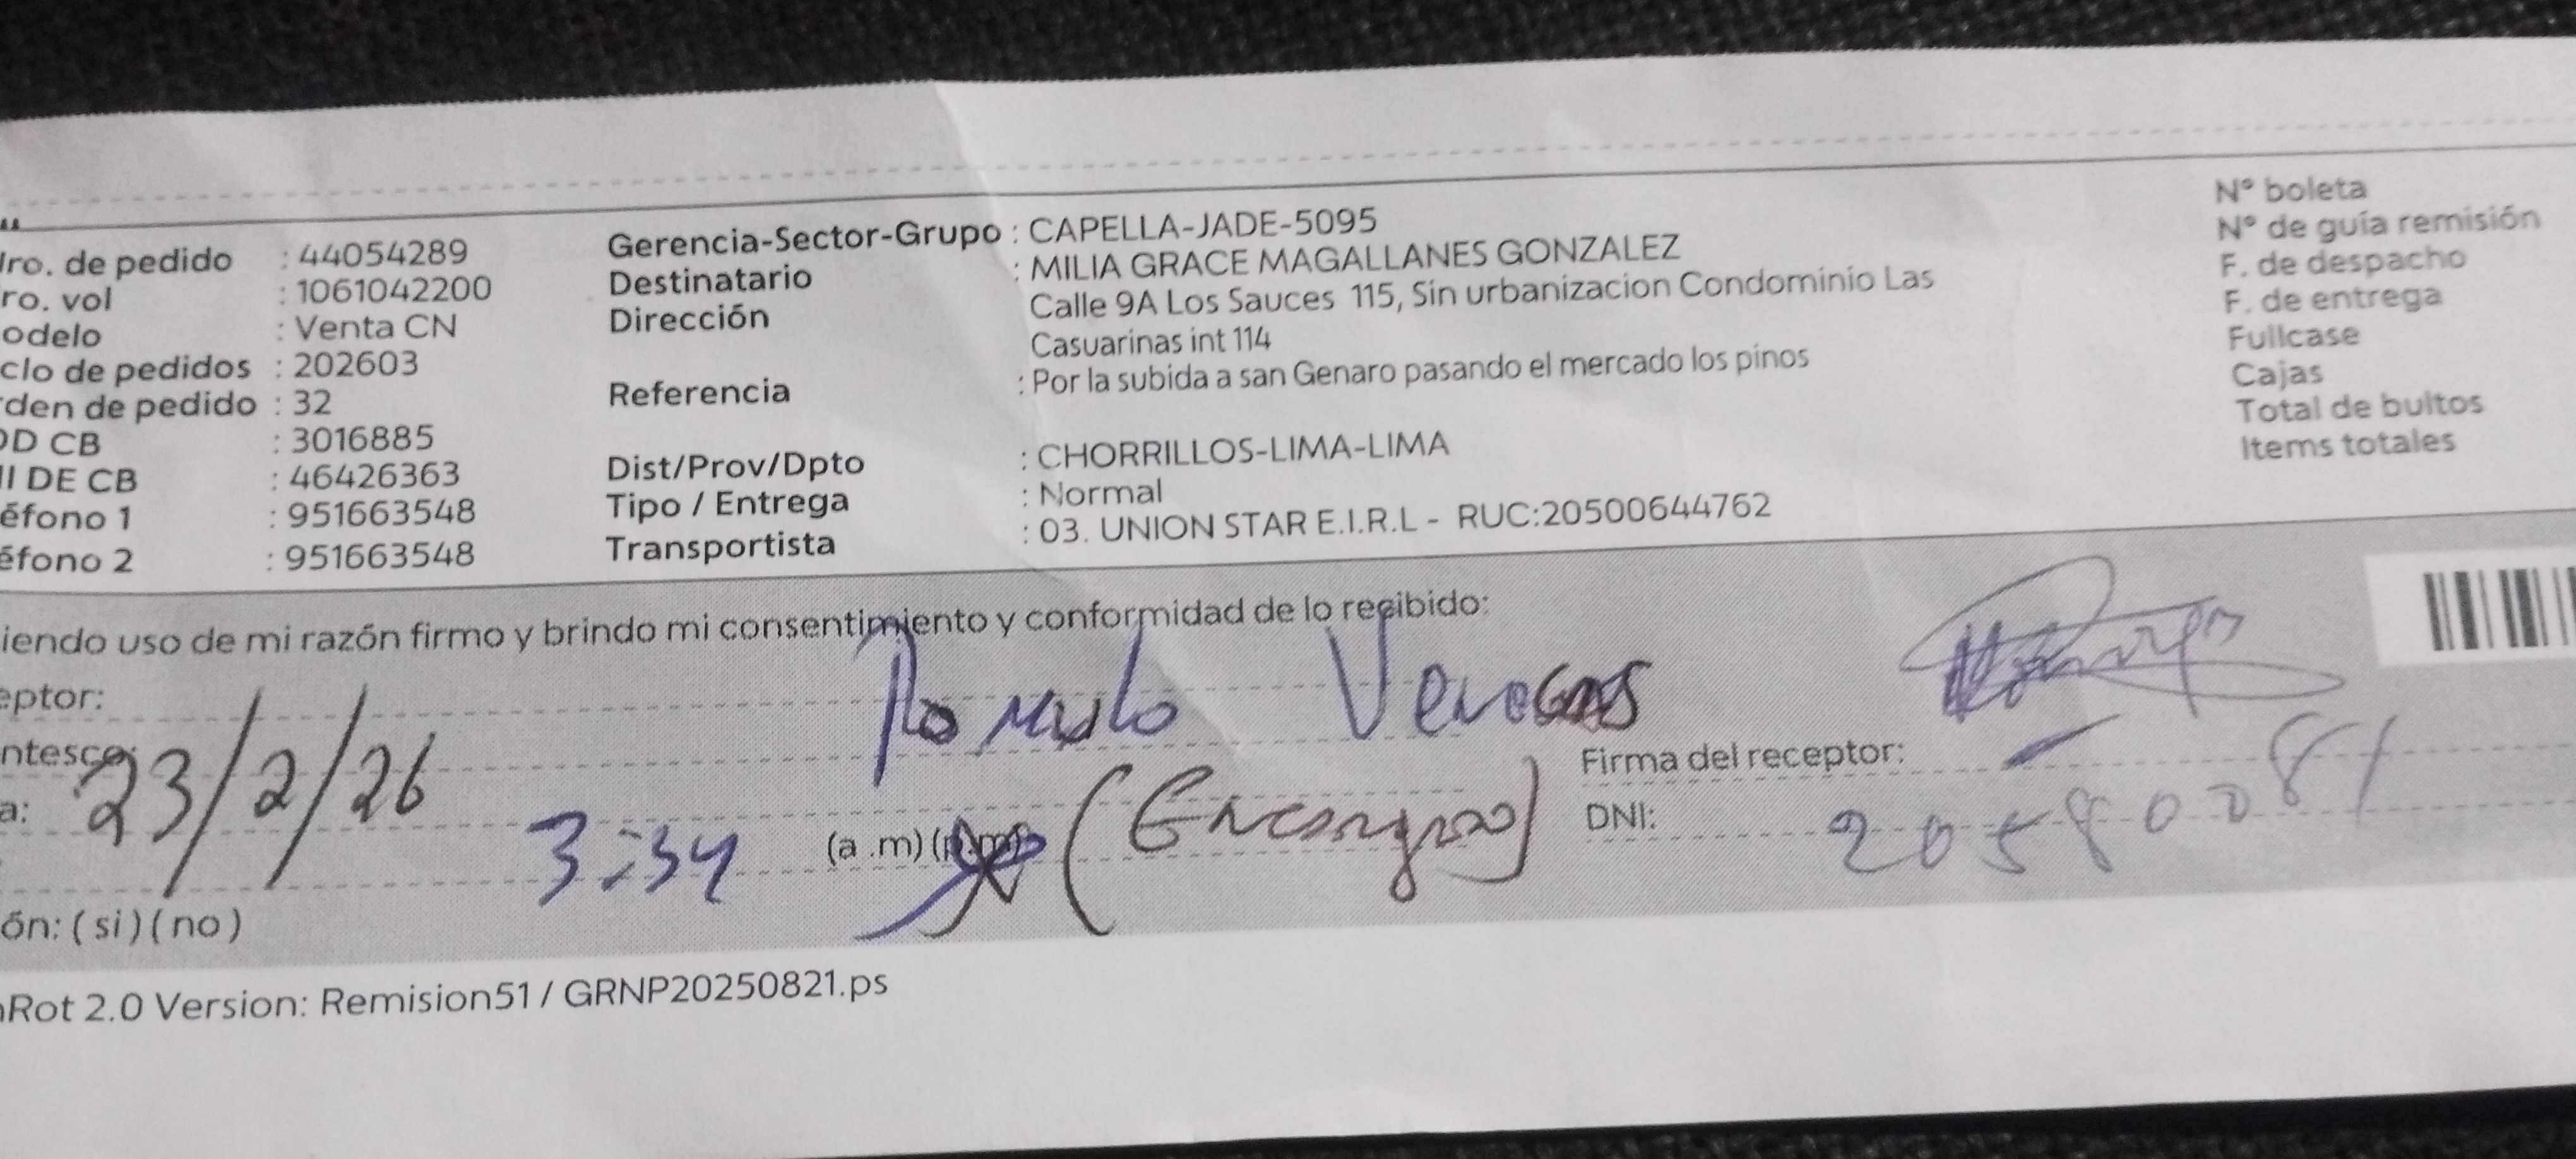 Nro. de pedido : 44054289
ro. vol : 1061042200
odelo : Venta CN
clo de pedidos : 202603
rden de pedido : 32
OD CB : 3016885
NI DE CB : 46426363
éfono 1 : 951663548
éfono 2 : 951663548
Gerencia-Sector-Grupo : CAPELLA-JADE-5095
Destinatario : MILIA GRACE MAGALLANES GONZALEZ
Dirección Calle 9A Los Sauces 115, Sin urbanizacion Condominio Las
Casuarinas int 114
Referencia : Por la subida a san Genaro pasando el mercado los pinos
Dist/Prov/Dpto : CHORRILLOS-LIMA-LIMA
Tipo / Entrega : Normal
Transportista : 03. UNION STAR E.I.R.L - RUC:20500644762
N° boleta
N° de guía remisión
F. de despacho
F. de entrega
Fullcase
Cajas
Total de bultos
Items totales
iendo uso de mi razón firmo y brindo mi consentimiento y conformidad de lo recibido:
eptor: Romulo
ntesco:
a: 23/2/26
3:34 (a .m) (p.m)
Firma del receptor:
DNI: 20580081
ón: ( si ) ( no )
nRot 2.0 Version: Remision51 / GRNP20250821.ps